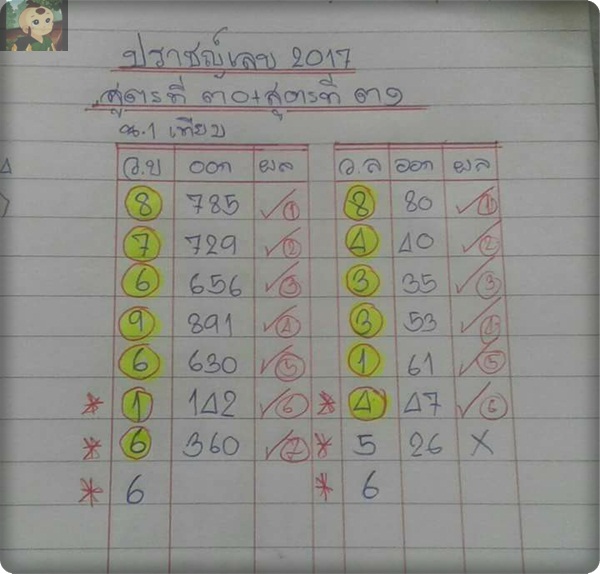 ปราชญ์เลข 2017
สูตรที่ ๓๐+สูตรที่ ๓๑
น.1 เทียบ
ว.บ ออก ผล ว.ล ออก ผล
8 785 ✓① 8 80 ✓①
7 729 ✓② 4 40 ✓②
6 656 ✓③ 3 35 ✓③
9 891 ✓④ 3 53 ✓④
6 630 ✓⑤ 1 61 ✓⑤
* 1 142 ✓⑥ * 4 47 ✓⑥
* 6 360 ✓⑦ * 5 26 X
* 6 * 6